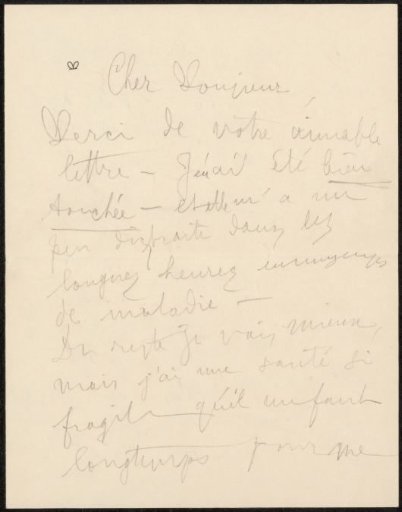 Cher Monsieur,
Merci de votre aimable
lettre – J'en ai été bien
touchée – et elle m'a un
peu distraite dans les
longues heures ennuyeuses
de maladie –
Du reste je vais mieux,
mais j'ai une santé si
fragile qu'il me faut
longtemps pour me